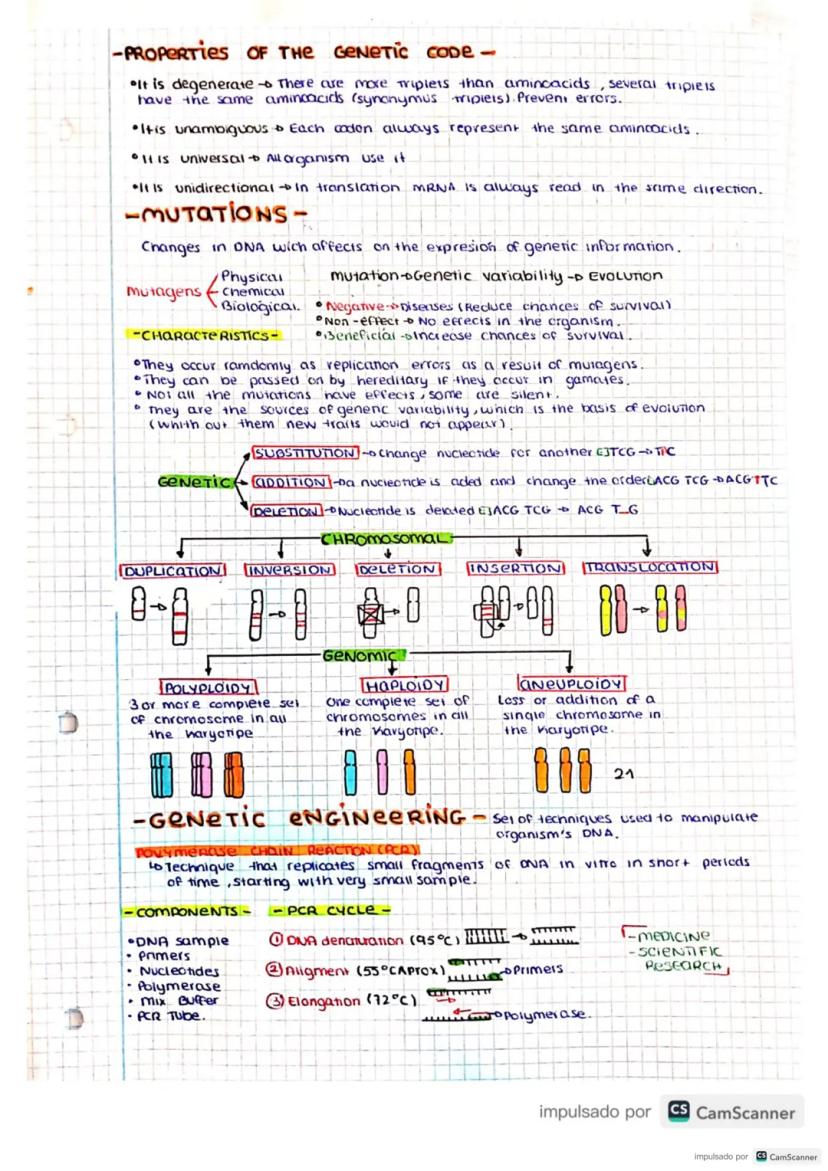 -PROPERTIES OF THE GENETIC CODE-
•It is degenerate → There are more triplets than aminoacids, several triplets
have the same aminoacids (synonymus triplets). Prevent errors.
•It is unambiguous → Each codon always represent the same aminoacids.
•It is universal → All organism use it
•It is unidirectional → In translation mRNA is always read in the same direction.
-MUTATIONS-
Changes in DNA wich affects on the expresion of genetic information.
Mutagens
Physical
Chemical
Biological.
Mutation → Genetic variability → EVOLUTION
•Negative → Diseases (Reduce chances of survival)
•Non-effect → No effects in the organism.
•Beneficial → Increase chances of survival.
-CHARACTERISTICS-
•They occur ramdomly as replication errors as a result of mutagens.
•They can be passed on by hereditary if they occur in gamates.
•Not all the mutations have effects, some are silent.
•They are the sources of genetic variability, which is the basis of evolution
(whith out them new traits would not appear).
GENETIC
SUBSTITUTION → Change nucleotide for another EJ TCG → TTC
ADDITION → a nucleotide is aded and change the order ACG TCG → ACG TTC
DELETION → Nucleotide is delated EJ ACG TCG → ACG T_G
CHROMOSOMAL
DUPLICATION INVERSION DELETION INSERTION TRANSLOCATION
GENOMIC
POLYPLOIDY
3 or more complete set
of chromosome in all
the karyotipe
HAPLOIDY
One complete set of
chromosomes in all
the karyotipe.
ANEUPLOIDY
Loss or addition of a
single chromosome in
the karyotipe.
21
-GENETIC ENGINEERING- Set of techniques used to manipulate
organism's DNA.
POLYMERASE CHAIN REACTION (PCR)
↳ Technique that replicates small fragments of DNA in vitro in short periods
of time, starting with very small sample.
-COMPONENTS-
•DNA sample
•Primers
•Nucleotides
•Polymerase
•Mix Buffer
•PCR Tube.
-PCR CYCLE-
① DNA denaturation (95°C)
② Aligment (55°C APROX) → Primers
③ Elongation (72°C)
→ Polymerase.
-MEDICINE
-SCIENTIFIC
RESEARCH
impulsado por CS CamScanner
impulsado por CS CamScanner